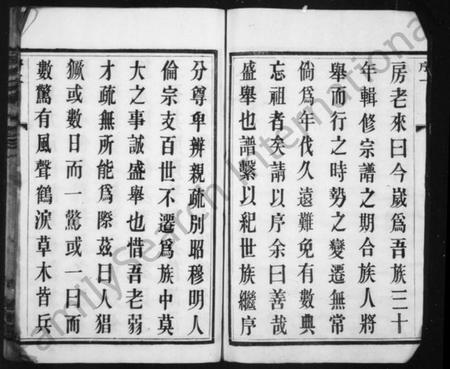 序
房老來曰今歲為吾族三十
年輯修宗譜之期合族人將
舉而行之時勢之變遷無常
倘為年代久遠難免有數典
忘祖者矣請以序余曰善哉
盛舉也譜繫以紀世族繼序
分尊卑辨親疏別昭穆明人
倫宗支百世不遷為族中莫
大之事誠盛舉也惜吾老弱
才疏無所能為際茲日人猖
獗或數日而一驚或一日而
數驚有風聲鶴淚草木皆兵
FamilySearch International